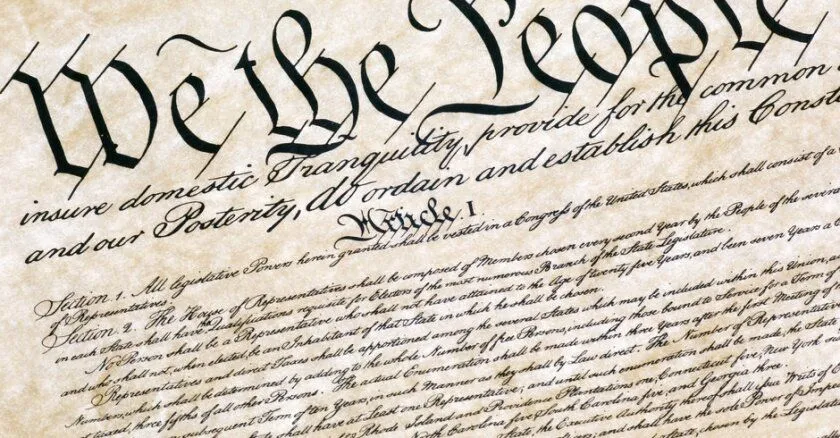 We the People
insure domestic Tranquility, provide for the common
and our Posterity, do ordain and establish this Const
Article I.
Section 1. All legislative Powers herein granted shall be vested in a Congress of the United States, which shall consist of a
of Representatives.
Section 2. The House of Representatives shall be composed of Members chosen every second Year by the People of the several
in each State shall have the Qualifications requisite for Electors of the most numerous Branch of the State Legislature.
No Person shall be a Representative who shall not have attained to the Age of twenty five Years, and been seven Years a
and who shall not, when elected, be an Inhabitant of that State in which he shall be chosen.
Representatives and direct Taxes shall be apportioned among the several States which may be included within this Union,
Numbers, which shall be determined by adding to the whole Number of free Persons, including those bound to Service for a Term of
taxed, three fifths of all other Persons. The actual Enumeration shall be made within three Years after the first Meeting of
subsequent Term of ten Years, in such Manner as they shall by Law direct. The Number of Representat
shall have at Least one Representative; and until such enumeration shall be made, the State
Rhode Island and Providence Plantations one, Connecticut five, New York
North Carolina five, South Carolina five, and Georgia three.
State, the Executive Authority thereof shall issue Writs of
shall have the sole Power of